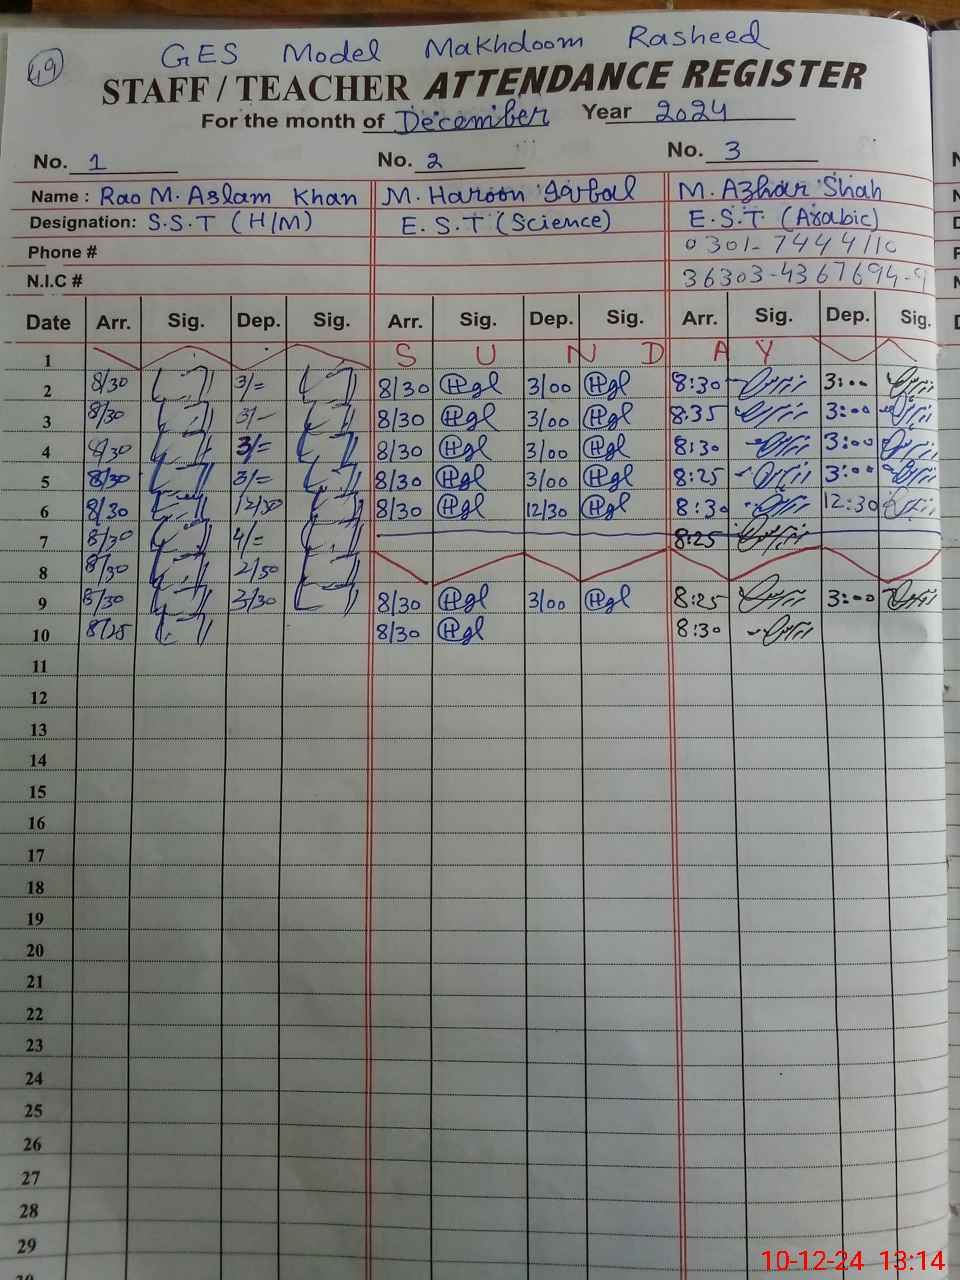 49
GES Model Makhdoom Rasheed
STAFF / TEACHER ATTENDANCE REGISTER
For the month of December Year 2024
No. 1 No. 2 No. 3
Name : Rao M. Aslam Khan M. Haroon Iqbal M. Azhar Shah
Designation: S.S.T (H/M) E.S.T (Science) E.S.T (Arabic)
Phone # 0301-7444110
N.I.C # 36303-4367694-9
Date Arr. Sig. Dep. Sig. Arr. Sig. Dep. Sig. Arr. Sig. Dep. Sig.
1 S U N D A Y
2 8/30 3/= 8/30 3/00 8:30 3:00
3 8/30 3/- 8/30 3/00 8:35 3:00
4 8/30 3/= 8/30 3/00 8:30 3:00
5 8/30 3/= 8/30 3/00 8:25 3:00
6 8/30 12/30 8/30 12/30 8:30 12:30
7 8/30 4/= 8:25
8 8/30 2/50
9 8/30 3/30 8/30 3/00 8:25 3:00
10 8/25 8/30 8:30
11
12
13
14
15
16
17
18
19
20
21
22
23
24
25
26
27
28
29
10-12-24 13:14